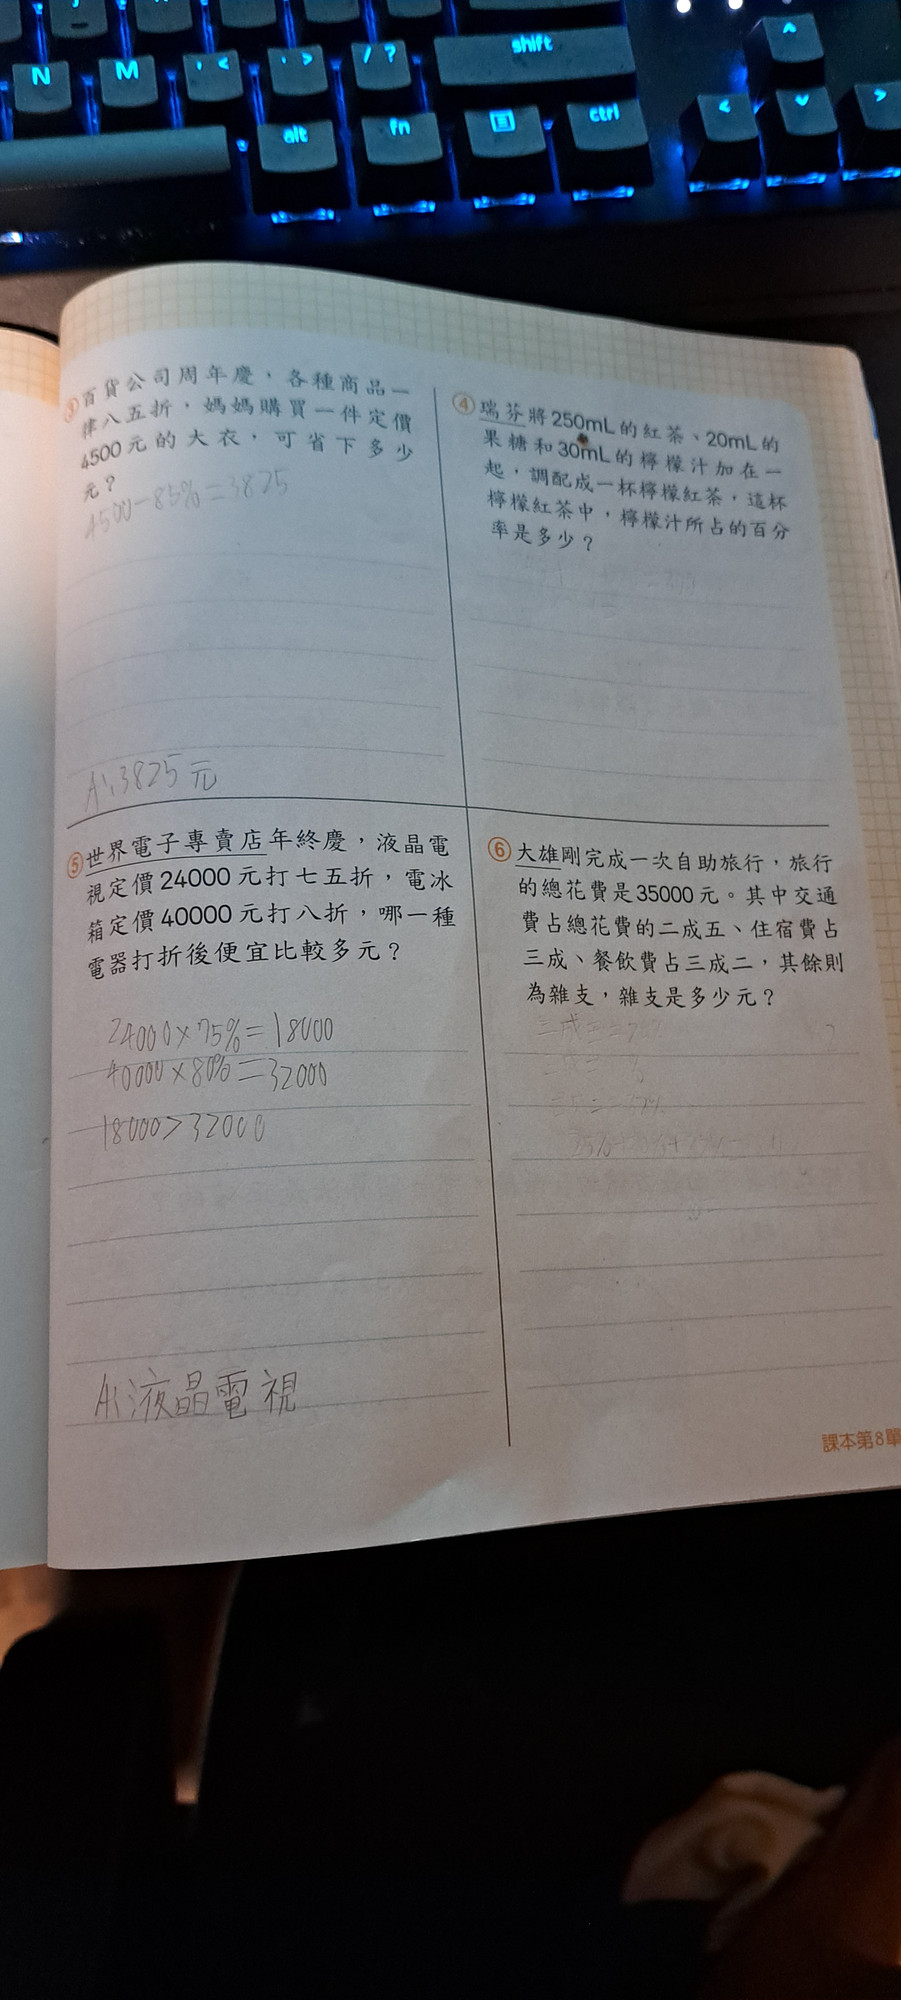 N M , < . > / ? shift ^
alt fn ctrl < v >
③百貨公司周年慶，各種商品一
律八五折，媽媽購買一件定價
4500元的大衣，可省下多少
元？
4500-85%=3825
A:3825元
④瑞芬將250mL的紅茶、20mL的
果糖和30mL的檸檬汁加在一
起，調配成一杯檸檬紅茶，這杯
檸檬紅茶中，檸檬汁所占的百分
率是多少？
⑤世界電子專賣店年終慶，液晶電
視定價24000元打七五折，電冰
箱定價40000元打八折，哪一種
電器打折後便宜比較多元？
24000×75%=18000
40000×80%=32000
18000>32000
A:液晶電視
⑥大雄剛完成一次自助旅行，旅行
的總花費是35000元。其中交通
費占總花費的二成五、住宿費占
三成、餐飲費占三成二，其餘則
為雜支，雜支是多少元？
課本第8單